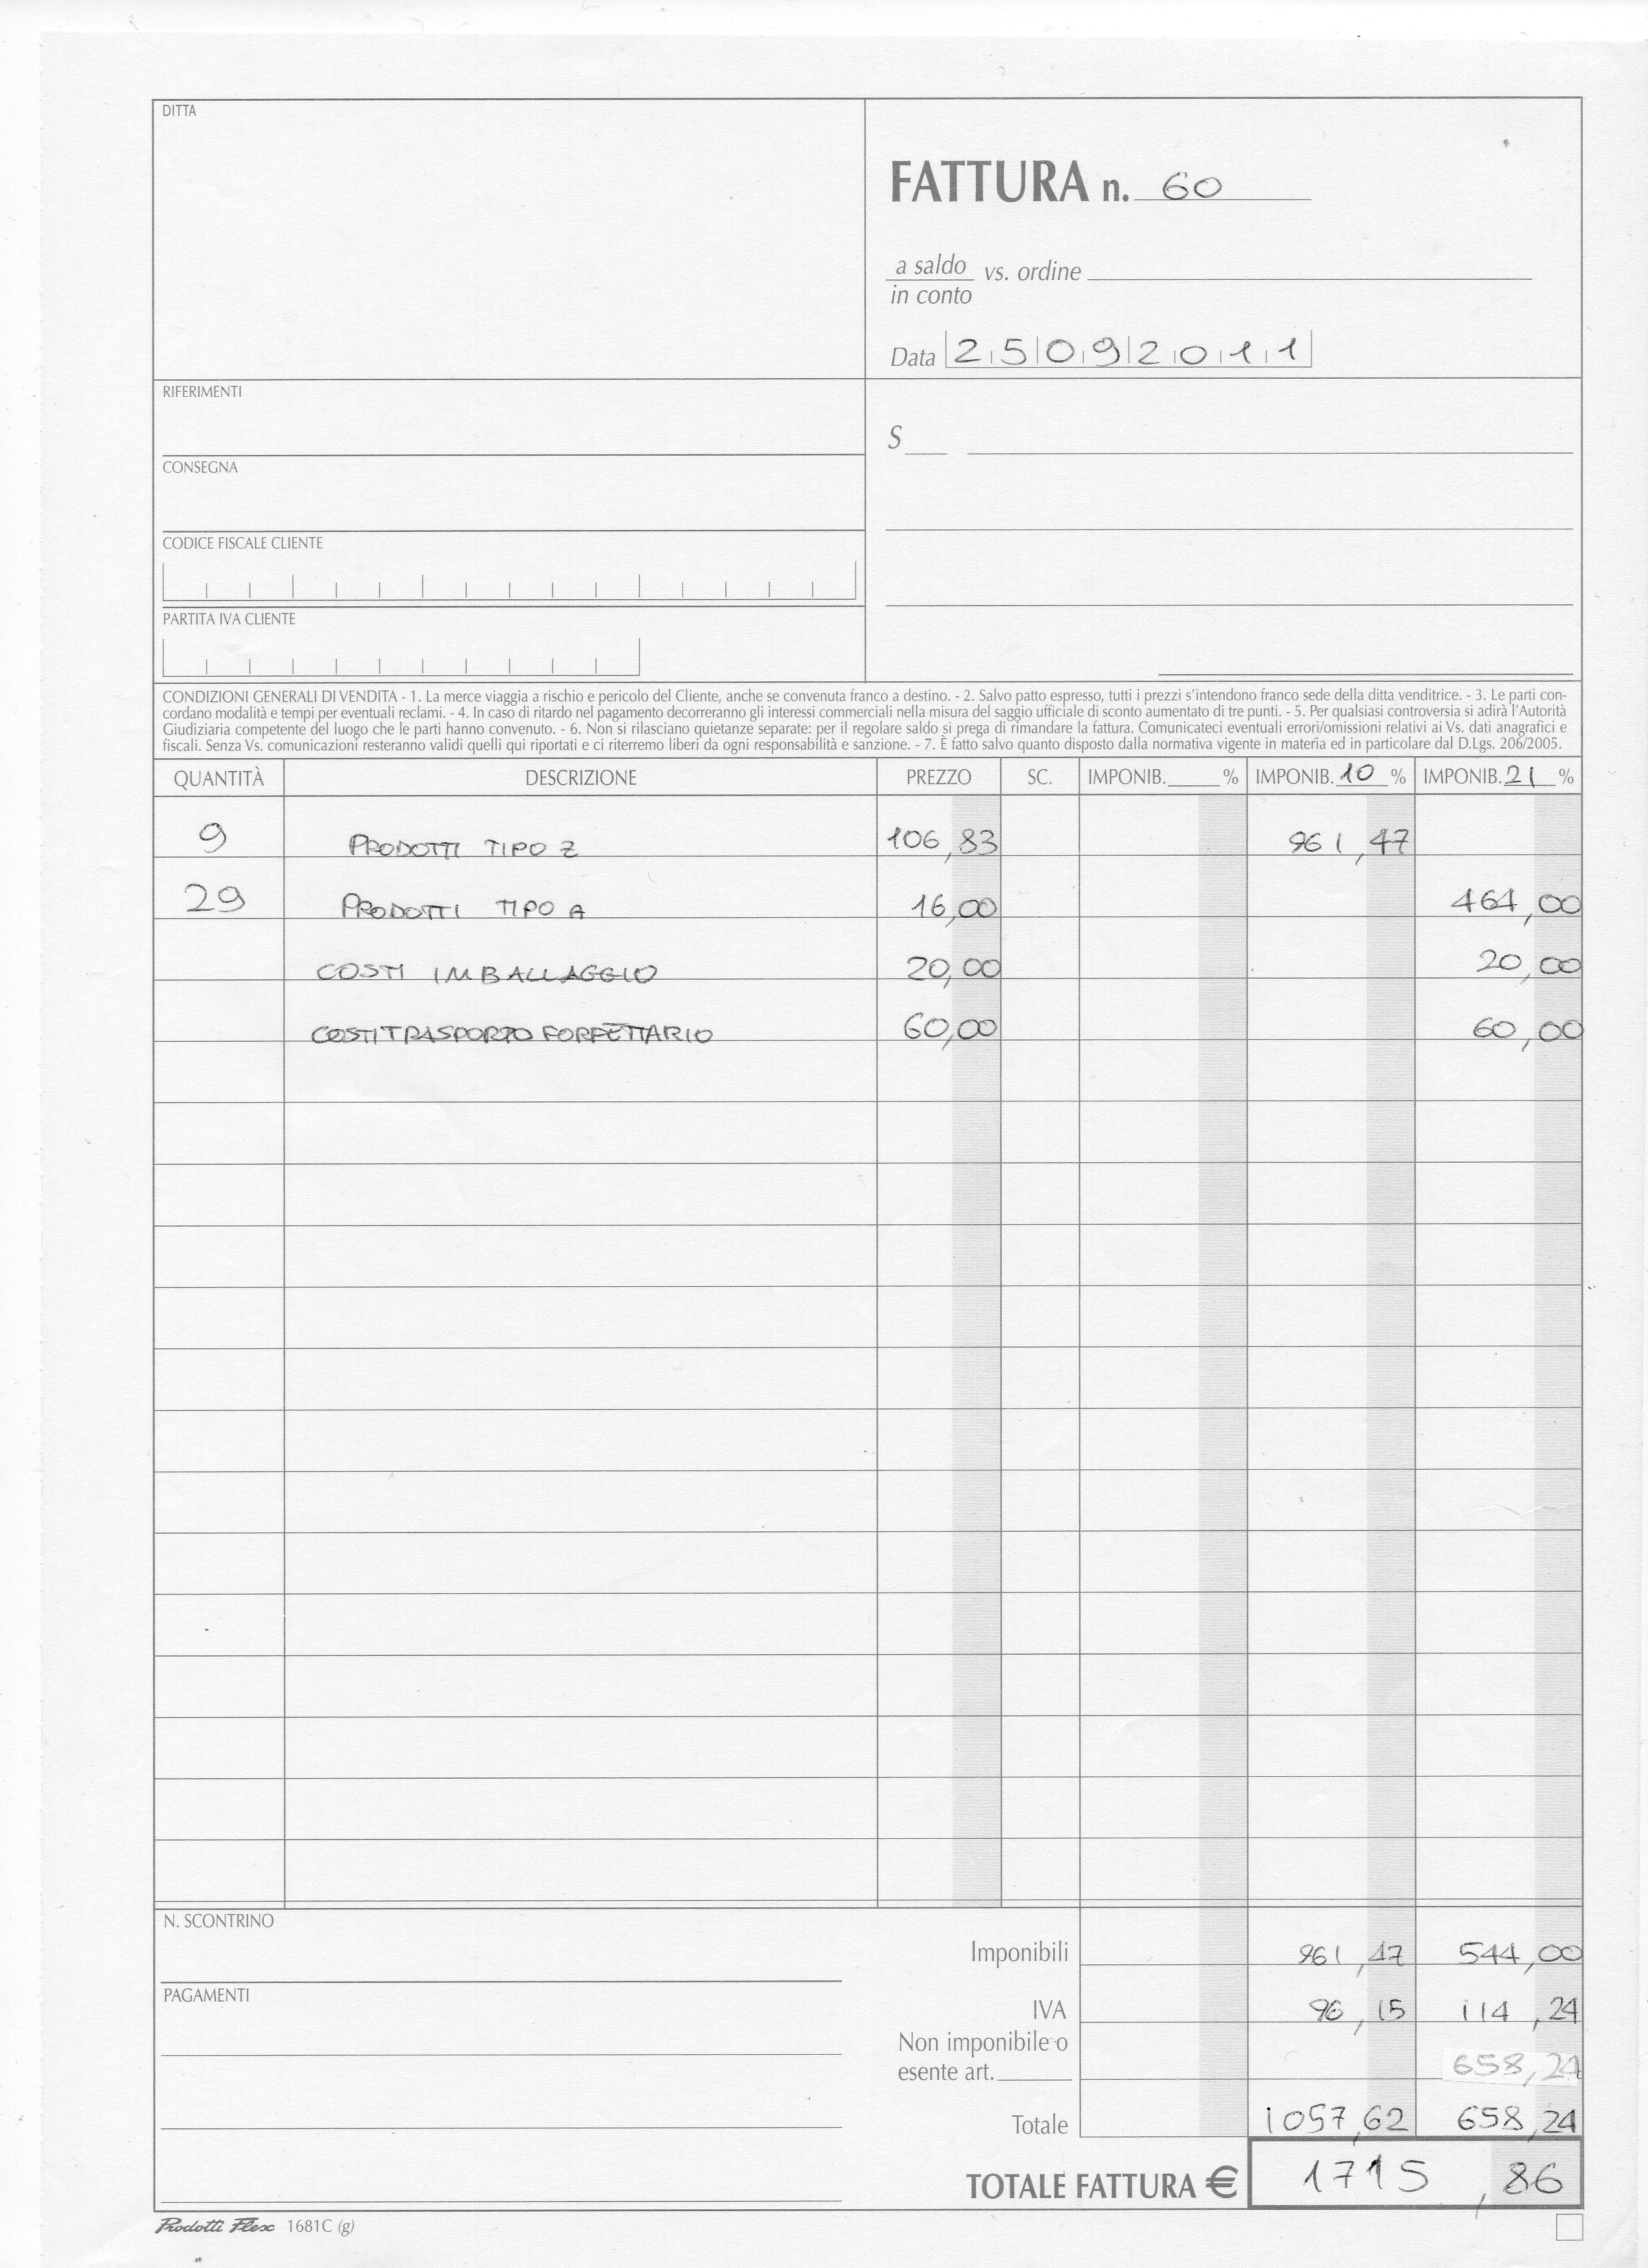 DITTA
FATTURA n. 60
a saldo vs. ordine
in conto
Data 25092011
RIFERIMENTI
S
CONSEGNA
CODICE FISCALE CLIENTE
PARTITA IVA CLIENTE
CONDIZIONI GENERALI DI VENDITA - 1. La merce viaggia a rischio e pericolo del Cliente, anche se convenuta franco a destino. - 2. Salvo patto espresso, tutti i prezzi s'intendono franco sede della ditta venditrice. - 3. Le parti con-
cordano modalità e tempi per eventuali reclami. - 4. In caso di ritardo nel pagamento decorreranno gli interessi commerciali nella misura del saggio ufficiale di sconto aumentato di tre punti. - 5. Per qualsiasi controversia si adirà l'Autorità
Giudiziaria competente del luogo che le parti hanno convenuto. - 6. Non si rilasciano quietanze separate: per il regolare saldo si prega di rimandare la fattura. Comunicateci eventuali errori/omissioni relativi ai Vs. dati anagrafici e
fiscali. Senza Vs. comunicazioni resteranno validi quelli qui riportati e ci riterremo liberi da ogni responsabilità e sanzione. - 7. È fatto salvo quanto disposto dalla normativa vigente in materia ed in particolare dal D.Lgs. 206/2005.
QUANTITÀ DESCRIZIONE PREZZO SC. IMPONIB. % IMPONIB. 10 % IMPONIB. 21 %
9 PRODOTTI TIPO Z 106,83 961,47
29 PRODOTTI TIPO A 16,00 464,00
COSTI IMBALLAGGIO 20,00 20,00
COSTI TRASPORTO FORFETTARIO 60,00 60,00
N. SCONTRINO
Imponibili 961,47 544,00
PAGAMENTI
IVA 96,15 114,24
Non imponibile o
esente art. 658,24
Totale 1057,62 658,24
TOTALE FATTURA € 1715,86
Prodotti Flex 1681C (g)